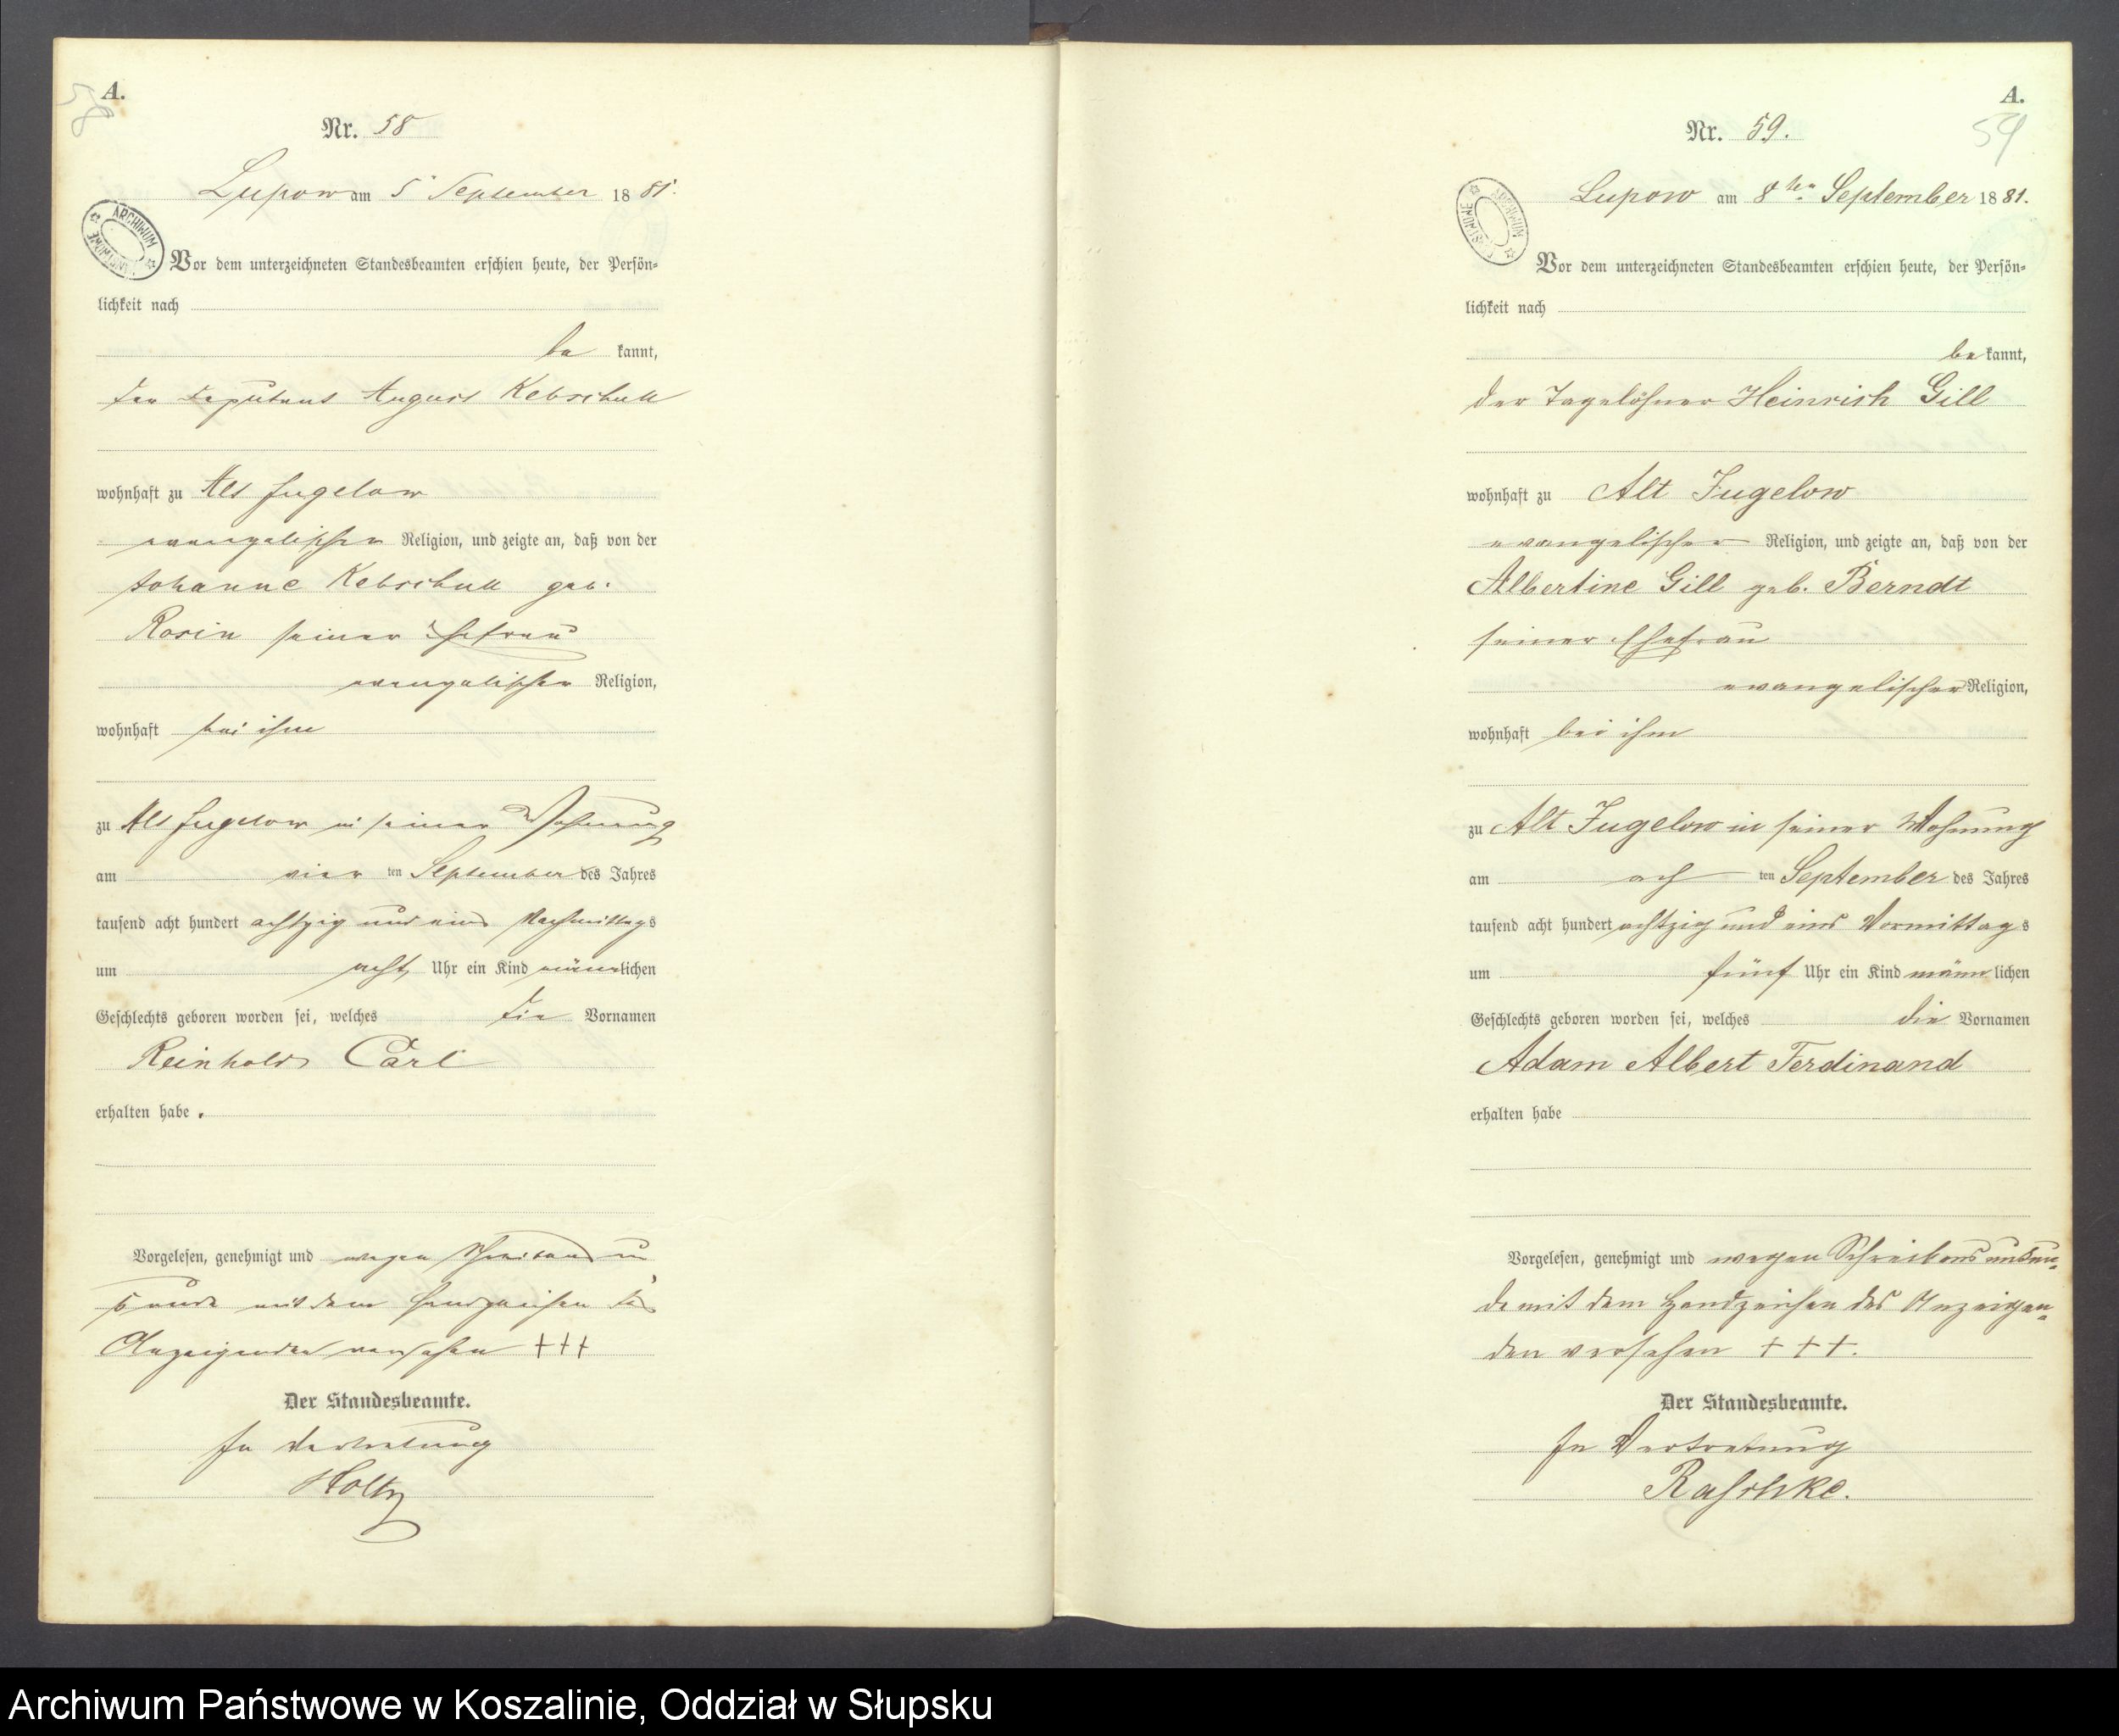 A.
58
Nr. 58
Lupow am 5 September 1881.
ARCHIWUM
Vor dem unterzeichneten Standesbeamten erschien heute, der Persön-
lichkeit nach
be kannt,
der Deputant August Kebschull
wohnhaft zu Alt Jugelow
evangelischer Religion, und zeigte an, daß von der
Johanne Kebschull geb.
Rosin seiner Ehefrau
evangelischer Religion,
wohnhaft bei ihm
zu Alt Jugelow in seiner Wohnung
am vier ten September des Jahres
tausend acht hundert achtzig und eins Nachmittags
um acht Uhr ein Kind männlichen
Geschlechts geboren worden sei, welches die Vornamen
Reinhold Carl
erhalten habe.
Vorgelesen, genehmigt und wegen Schreibens un
kunde mit dem Handzeichen des
Anzeigenden versehen +++
Der Standesbeamte.
In Vertretung
Holtz
A.
59
Nr. 59.
Lupow am 8ten September 1881.
ARCHIWUM
Vor dem unterzeichneten Standesbeamten erschien heute, der Persön-
lichkeit nach
be kannt,
der Tagelöhner Heinrich Gill
wohnhaft zu Alt Jugelow
evangelischer Religion, und zeigte an, daß von der
Albertine Gill geb. Berndt
seiner Ehefrau
evangelischer Religion,
wohnhaft bei ihm
zu Alt Jugelow in seiner Wohnung
am ach ten September des Jahres
tausend acht hundert achtzig und eins Vormittags
um fünf Uhr ein Kind männlichen
Geschlechts geboren worden sei, welches die Vornamen
Adam Albert Ferdinand
erhalten habe
Vorgelesen, genehmigt und wegen Schreibens unkun-
de mit dem Handzeichen des Anzeigen-
den versehen +++.
Der Standesbeamte.
In Vertretung
Raschke.
Archiwum Państwowe w Koszalinie, Oddział w Słupsku